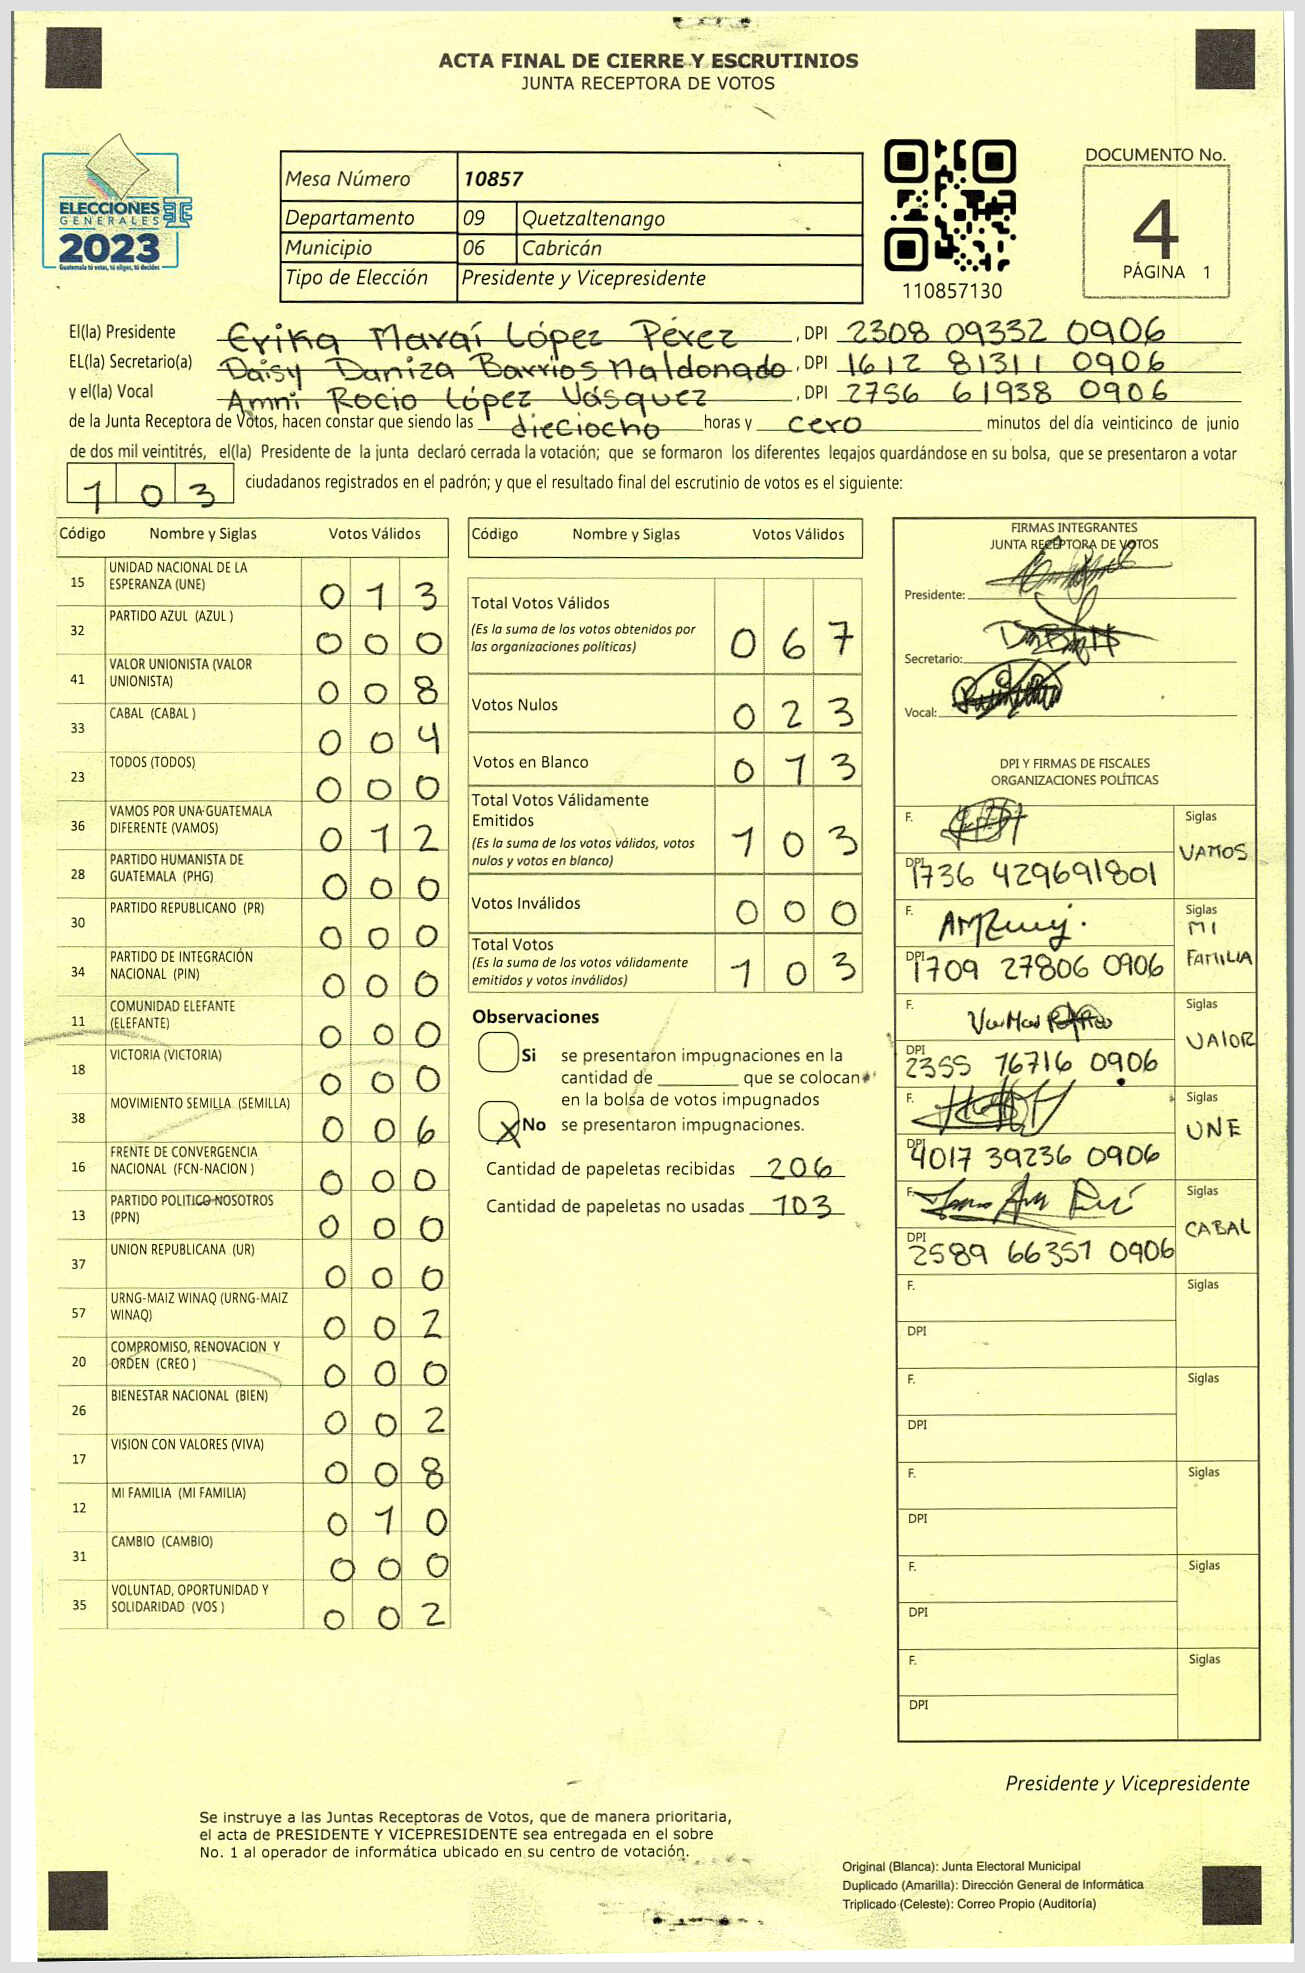 ACTA FINAL DE CIERRE Y ESCRUTINIOS
JUNTA RECEPTORA DE VOTOS
ELECCIONES
GENERALES
2023
Guatemala tú votas, tú eliges, tú decides
Mesa Número 10857
Departamento 09 Quetzaltenango
Municipio 06 Cabricán
Tipo de Elección Presidente y Vicepresidente
110857130
DOCUMENTO No.
4
PÁGINA 1
El(la) Presidente Erika Maraí López Pérez, DPI 2308 09332 0906
EL(la) Secretario(a) Daisy Daniza Barrios Maldonado, DPI 1612 81311 0906
y el(la) Vocal Amni Rocio López Vásquez, DPI 2756 61938 0906
de la Junta Receptora de Votos, hacen constar que siendo las dieciocho horas y cero minutos del día veinticinco de junio
de dos mil veintitrés, el(la) Presidente de la junta declaró cerrada la votación; que se formaron los diferentes legajos guardándose en su bolsa, que se presentaron a votar
103 ciudadanos registrados en el padrón; y que el resultado final del escrutinio de votos es el siguiente:
Código Nombre y Siglas Votos Válidos
15 UNIDAD NACIONAL DE LA ESPERANZA (UNE) 0 1 3
32 PARTIDO AZUL (AZUL ) 0 0 0
41 VALOR UNIONISTA (VALOR UNIONISTA) 0 0 8
33 CABAL (CABAL ) 0 0 4
23 TODOS (TODOS) 0 0 0
36 VAMOS POR UNA GUATEMALA DIFERENTE (VAMOS) 0 1 2
28 PARTIDO HUMANISTA DE GUATEMALA (PHG) 0 0 0
30 PARTIDO REPUBLICANO (PR) 0 0 0
34 PARTIDO DE INTEGRACIÓN NACIONAL (PIN) 0 0 0
11 COMUNIDAD ELEFANTE (ELEFANTE) 0 0 0
18 VICTORIA (VICTORIA) 0 0 0
38 MOVIMIENTO SEMILLA (SEMILLA) 0 0 6
16 FRENTE DE CONVERGENCIA NACIONAL (FCN-NACION ) 0 0 0
13 PARTIDO POLITICO NOSOTROS (PPN) 0 0 0
37 UNION REPUBLICANA (UR) 0 0 0
57 URNG-MAIZ WINAQ (URNG-MAIZ WINAQ) 0 0 2
20 COMPROMISO, RENOVACION Y ORDEN (CREO ) 0 0 0
26 BIENESTAR NACIONAL (BIEN) 0 0 2
17 VISION CON VALORES (VIVA) 0 0 8
12 MI FAMILIA (MI FAMILIA) 0 1 0
31 CAMBIO (CAMBIO) 0 0 0
35 VOLUNTAD, OPORTUNIDAD Y SOLIDARIDAD (VOS ) 0 0 2
Código Nombre y Siglas Votos Válidos
Total Votos Válidos 0 6 7
(Es la suma de los votos obtenidos por
las organizaciones políticas)
Votos Nulos 0 2 3
Votos en Blanco 0 1 3
Total Votos Válidamente
Emitidos 1 0 3
(Es la suma de los votos válidos, votos
nulos y votos en blanco)
Votos Inválidos 0 0 0
Total Votos 1 0 3
(Es la suma de los votos válidamente
emitidos y votos inválidos)
Observaciones
Si se presentaron impugnaciones en la
cantidad de ________ que se colocan
en la bolsa de votos impugnados
X No se presentaron impugnaciones.
Cantidad de papeletas recibidas 206
Cantidad de papeletas no usadas 103
FIRMAS INTEGRANTES
JUNTA RECEPTORA DE VOTOS
Presidente:
Secretario:
Vocal:
DPI Y FIRMAS DE FISCALES
ORGANIZACIONES POLÍTICAS
F. Siglas VAMOS
DPI 1736 42969 1801
F. Siglas MI FAMILIA
DPI 1709 27806 0906
F. Siglas VALOR
DPI 2355 16716 0906
F. Siglas UNE
DPI 4017 39236 0906
F. Siglas CABAL
DPI 2589 66351 0906
F. Siglas
DPI
F. Siglas
DPI
F. Siglas
DPI
F. Siglas
DPI
F. Siglas
DPI
Presidente y Vicepresidente
Se instruye a las Juntas Receptoras de Votos, que de manera prioritaria,
el acta de PRESIDENTE Y VICEPRESIDENTE sea entregada en el sobre
No. 1 al operador de informática ubicado en su centro de votación.
Original (Blanca): Junta Electoral Municipal
Duplicado (Amarilla): Dirección General de Informática
Triplicado (Celeste): Correo Propio (Auditoría)